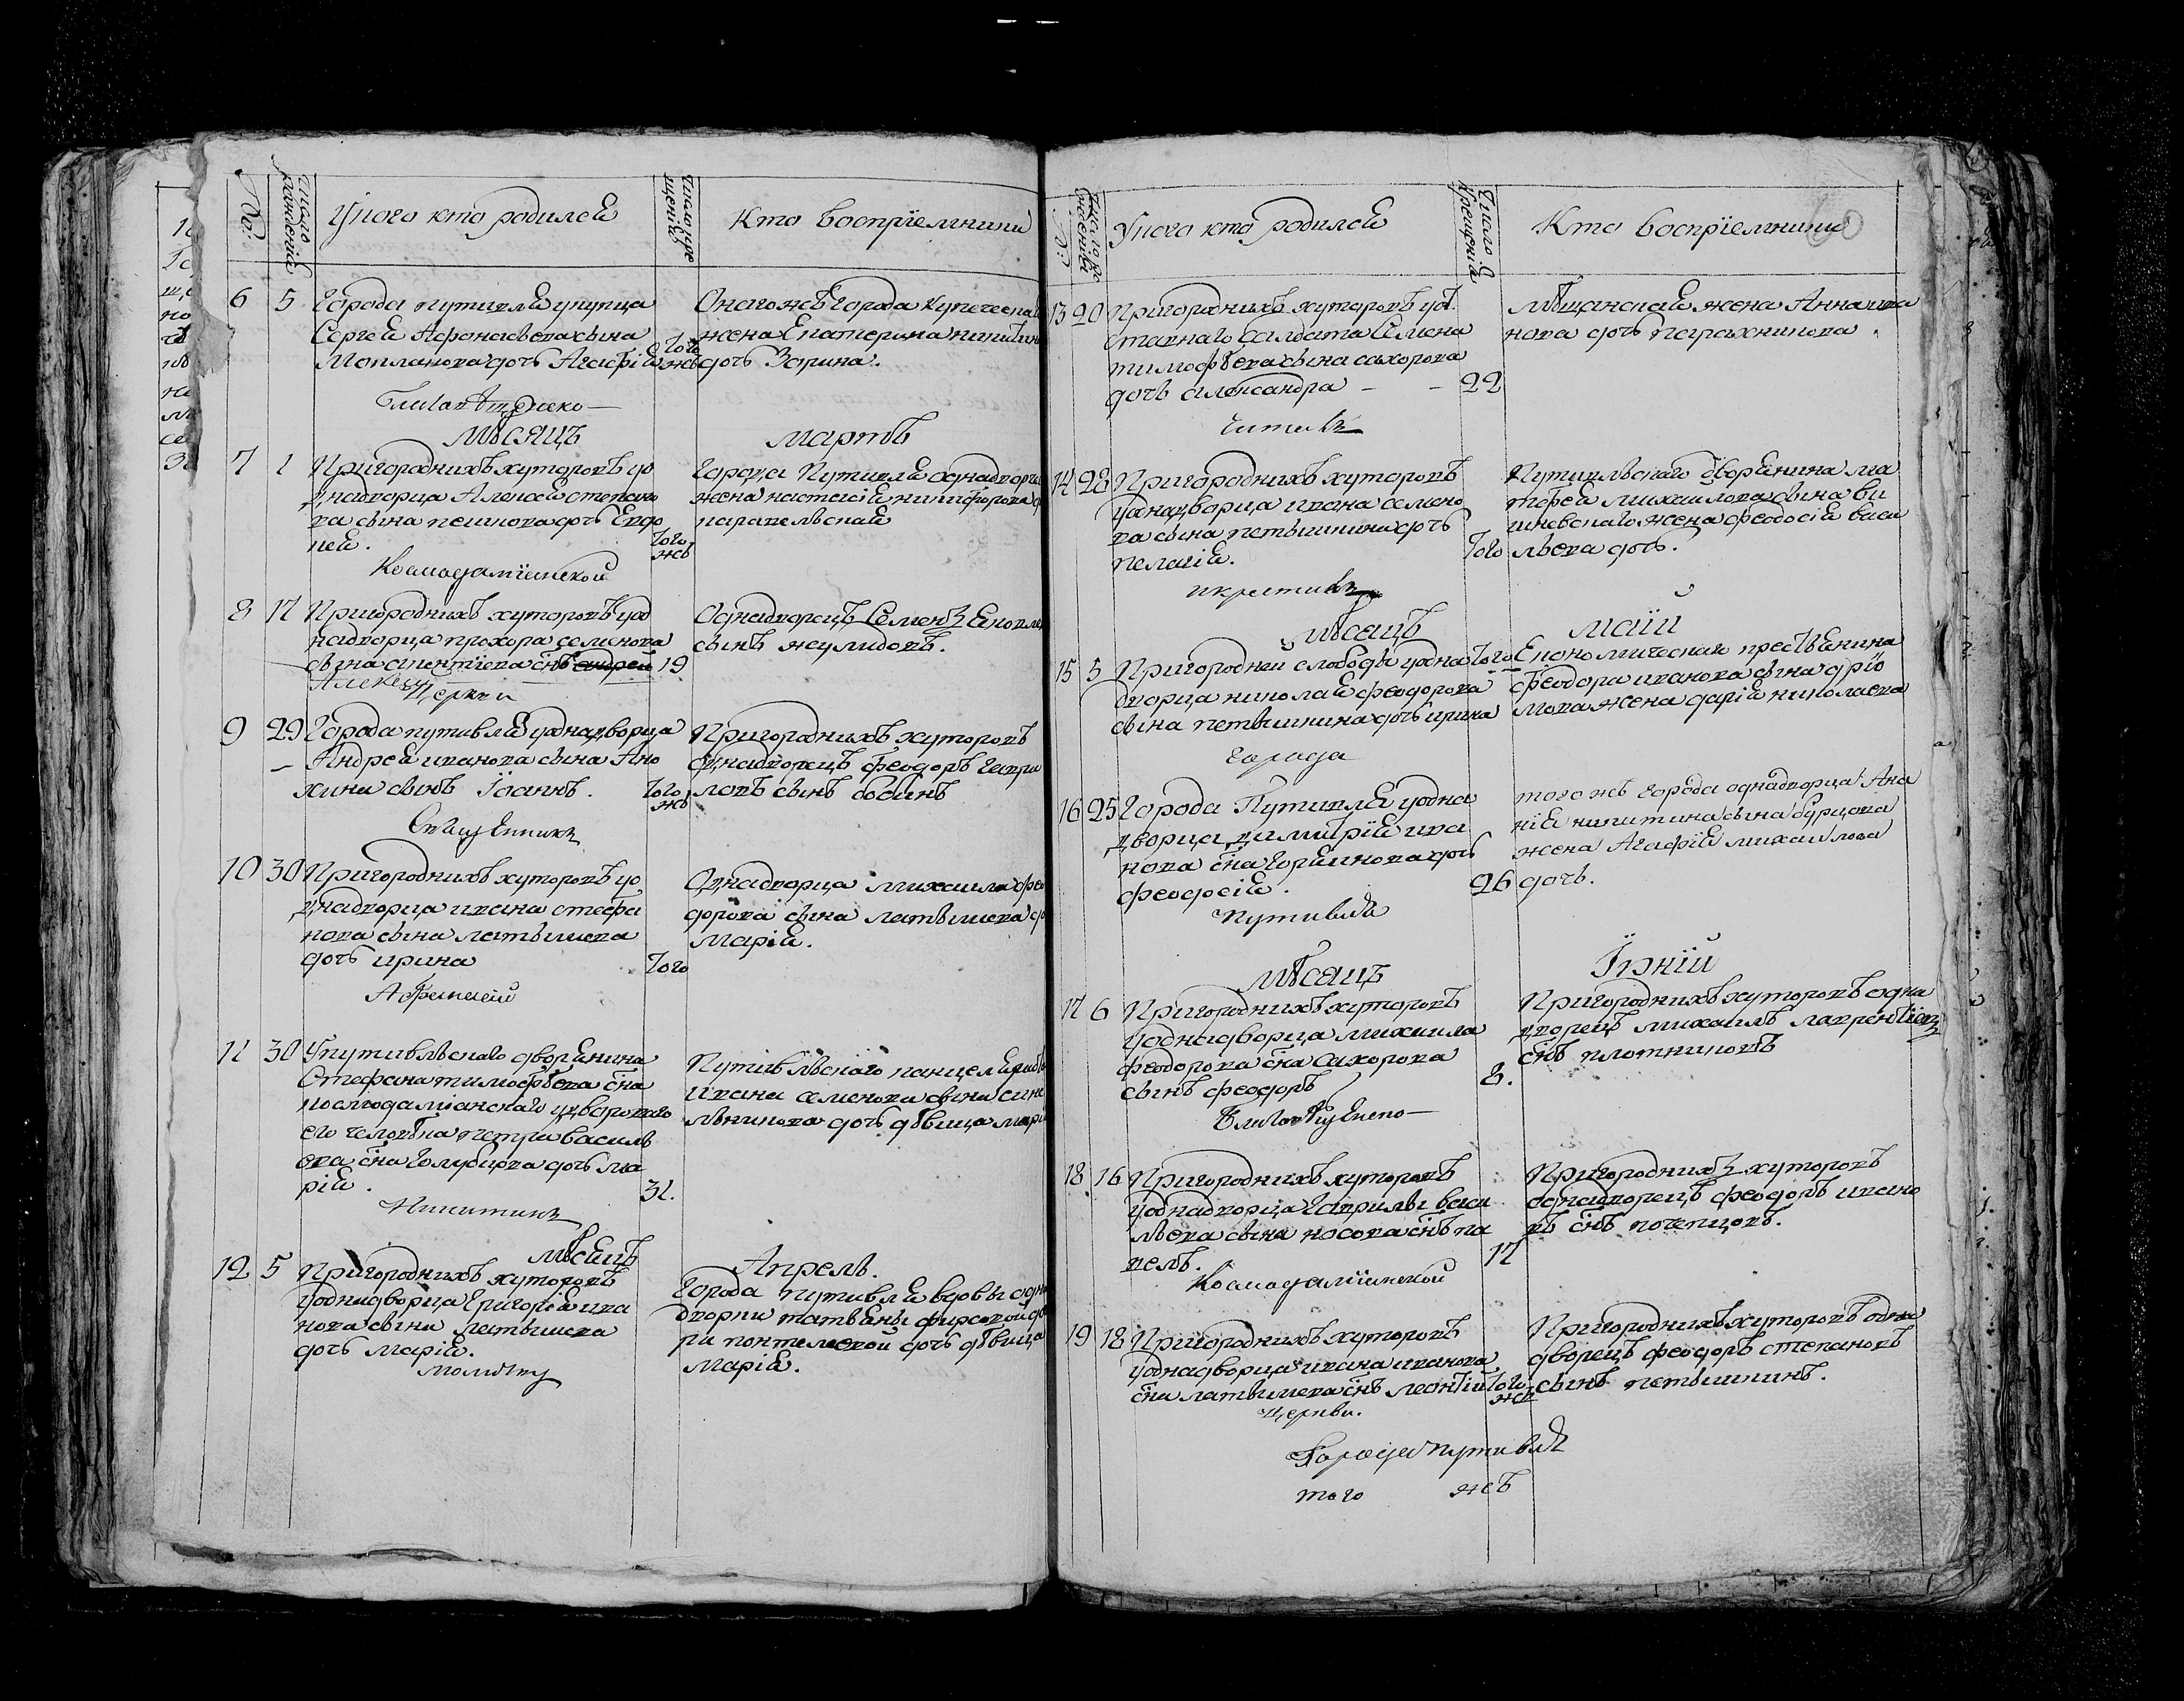 №:
Число рожденія
У кого кто родился
Число крещенія
Кто воспріемники
6 5
Города путивля у купца
Сергея Афонасьева сына
Маклакова дочь Агафія
того жъ
Онаго жъ города купеческая
жена Екатерина никитина
дочь Зорина.
месяцъ мартъ
7 1
Пригороднихъ хуторовъ уо
днадворца Алексея степано
ва сына пешкова дочь Евдо
кея.
того жъ
Города Путивля однадворца
жена настасія никифорова
карапельская
Космодаміянской
8 17
Пригороднихъ хуторовъ уод
надворца прохора семенова
сына снъ андрей
Алексей
19
Однадворецъ Семенъ
сынъ
Церкви
9 29
Города путивля уоднадворца
Андрея иванова сына Ано
хина сынъ Іоаннъ.
того жъ
Пригороднихъ хуторовъ
однадворецъ феодоръ гаври
ловъ сынъ бабинъ
Священникъ
10 30
Пригороднихъ хуторовъ уо
днадворца ивана стефа
нова сына латышева
дочь ирина
того
Однадворца михаила фео
дорова сына латышева до
Марія.
Афанасій
11 30
Упутивльскаго дворянина
Стефана тимофеева сна
космодаміанскаго у дворового
его человека петра василь
ева сна голубцова дочь ма
рія.
31.
Путивльскаго канцеляриста
ивана семенова сына
дочь девица марія
Никитинъ
месяцъ Апрель.
12 5
Пригороднихъ хуторовъ
уоднадворца Григорія ива
нова сына латышева
дочь марія.
Города путивля вдовы одно
дворки татьяны фирсовой до
ри дочь девица
Марія.
молитву
№:
Число рожденія
У кого кто родился
Число крещенія
Кто воспріемники
60
13 20
Пригороднихъ хуторовъ уот
ставнаго салдата Семена
тимофеева сына сахорова
дочь александра
22
Мещанская жена Анна ива
нова дочь
читалъ
14 28
Пригороднихъ хуторовъ
уоднадворца ивана семено
ва сына петышина дочь
пелагія.
того
Путивльскаго дворянина ма
тфея михаилова сына ви
шневскаго жена феодосія васи
льева дочь.
икрестилъ
месяцъ маій
15 5
Пригородней слободы уодна
дворца николая феодорова
сына петышина дочь ирина
того
Економическаго крестьянина
феодора иванова сына
жена дарія николаева
города
16 25
Города Путивля уодна
дворца димитрія ива
нова сна горяинова дочь
феодосія.
26
того жъ города однадворца Ана
нія никитина сына бурцова
жена Агафія михаилова
дочь.
путивля
месяцъ Іюній
17 6
Пригороднихъ хуторовъ
уоднадворца михаила
феодорова сна Сахорова
сынъ феодоръ
8.
Пригороднихъ хуторовъ одна
дворецъ михаилъ лаврентіевъ
снъ плотниковъ
18 16
Пригороднихъ хуторовъ
уоднадворца Гаврилы васи
льева сына носова снъ па
велъ.
17
Пригороднихъ хуторовъ
однадворецъ феодоръ ивано
въ снъ почепцовъ.
Космодаміянской
19 18
Пригороднихъ хуторовъ
уоднадворца ивана иванова
сна латышева снъ леонтій
того жъ
Пригороднихъ хуторовъ одна
дворецъ феодоръ степановъ
сынъ петышинъ.
церкви.
Города путивля
того жъ